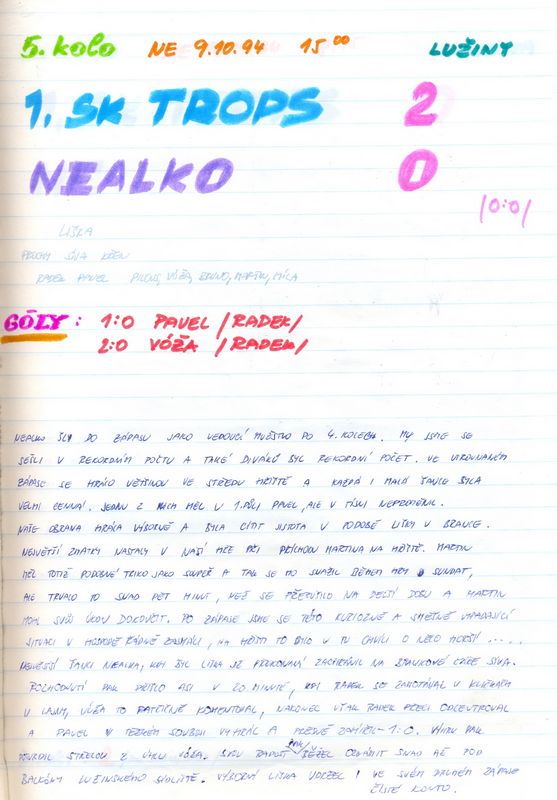 5. KOLO NE 9.10.94 15⁰⁰ LUŽINY
1. SK TROPS 2
NEALKO 0
/0:0/
LIŠKA
SÍVA KŘEN
RADEK PAVEL PILOUS, VÓŽA, BRUNO, MARTIN, MÍLA
GÓLY: 1:0 PAVEL /RADEK/
2:0 VÓŽA /RADEK/
NEALKO ŠLY DO ZÁPASU JAKO VEDOUCÍ MUŽSTVO PO 4. KOLECH. MY JSME SE
SEŠLI V REKORDNÍM POČTU A TAKÉ DIVÁKŮ BYL REKORDNÍ POČET. VE VYROVNANÉM
ZÁPASE SE HRÁLO VĚTŠINOU VE STŘEDU HŘIŠTĚ A KAŽDÁ I MALÁ ŠANCE BYLA
VELMI CENNÁ. JEDNU Z NICH MĚL V 1. PŮLI PAVEL, ALE V TÍSNI NEPROMĚNIL.
NAŠE OBRANA HRÁLA VÝBORNĚ A BYLA CÍTIT JISTOTA V PODOBĚ LIŠKY V BRANCE.
NEJVĚTŠÍ ZMATKY NASTALY V NAŠÍ HŘE PŘI PŘÍCHODU MARTINA NA HŘIŠTĚ. MARTIN
MĚL TOTIŽ PODOBNÉ TRIKO JAKO SOUPEŘ A TAK SE HO SNAŽIL BĚHEM HRY SUNDAT,
ALE TRVALO TO SNAD PĚT MINUT, NEŽ SE PŘETOČILO NA DELŠÍ DOBU A MARTIN
MOHL SVŮJ ÚKON DOKONČIT. PO ZÁPASE JSME SE TÉTO KURIOZNĚ A SMĚŠNĚ VYPADAJÍCÍ
SITUACI V HOSPODĚ ŘÁDNĚ ZASMÁLI, NA HŘIŠTI TO BYLO V TU CHVÍLI O NĚCO HORŠÍ .....
NEJVĚTŠÍ ŠANCI NEALKA, KDY BYL LIŠKA JIŽ PŘEKONANÝ ZACHRÁNIL NA BRANKOVÉ ČÁŘE SÍVA.
ROZHODNUTÍ PAK PŘIŠLO ASI V 20 MINUTĚ, KDY RADEK SE ZAMOTÁVAL V KLIČKÁCH
U LAJNY, VÓŽA TO PATŘIČNĚ KOMENTOVAL, NAKONEC VŠAK RADEK PŘECI ODCENTROVAL
A PAVEL V TĚŽKÉM SOUBOJI VYHRÁL A PŘESNĚ ZAMÍŘIL - 1:0. VÝHRU PAK
POTVRDIL STŘELOU Z ÚHLU VÓŽA. SVOU RADOST PAK BĚŽEL OZNÁMIT SNAD AŽ POD
BALKÓNY LUŽINSKÉHO SÍDLIŠTĚ. VÝBORNÝ LIŠKA UDRŽEL I VE SVÉM DRUHÉM ZÁPASE
ČISTÉ KONTO.